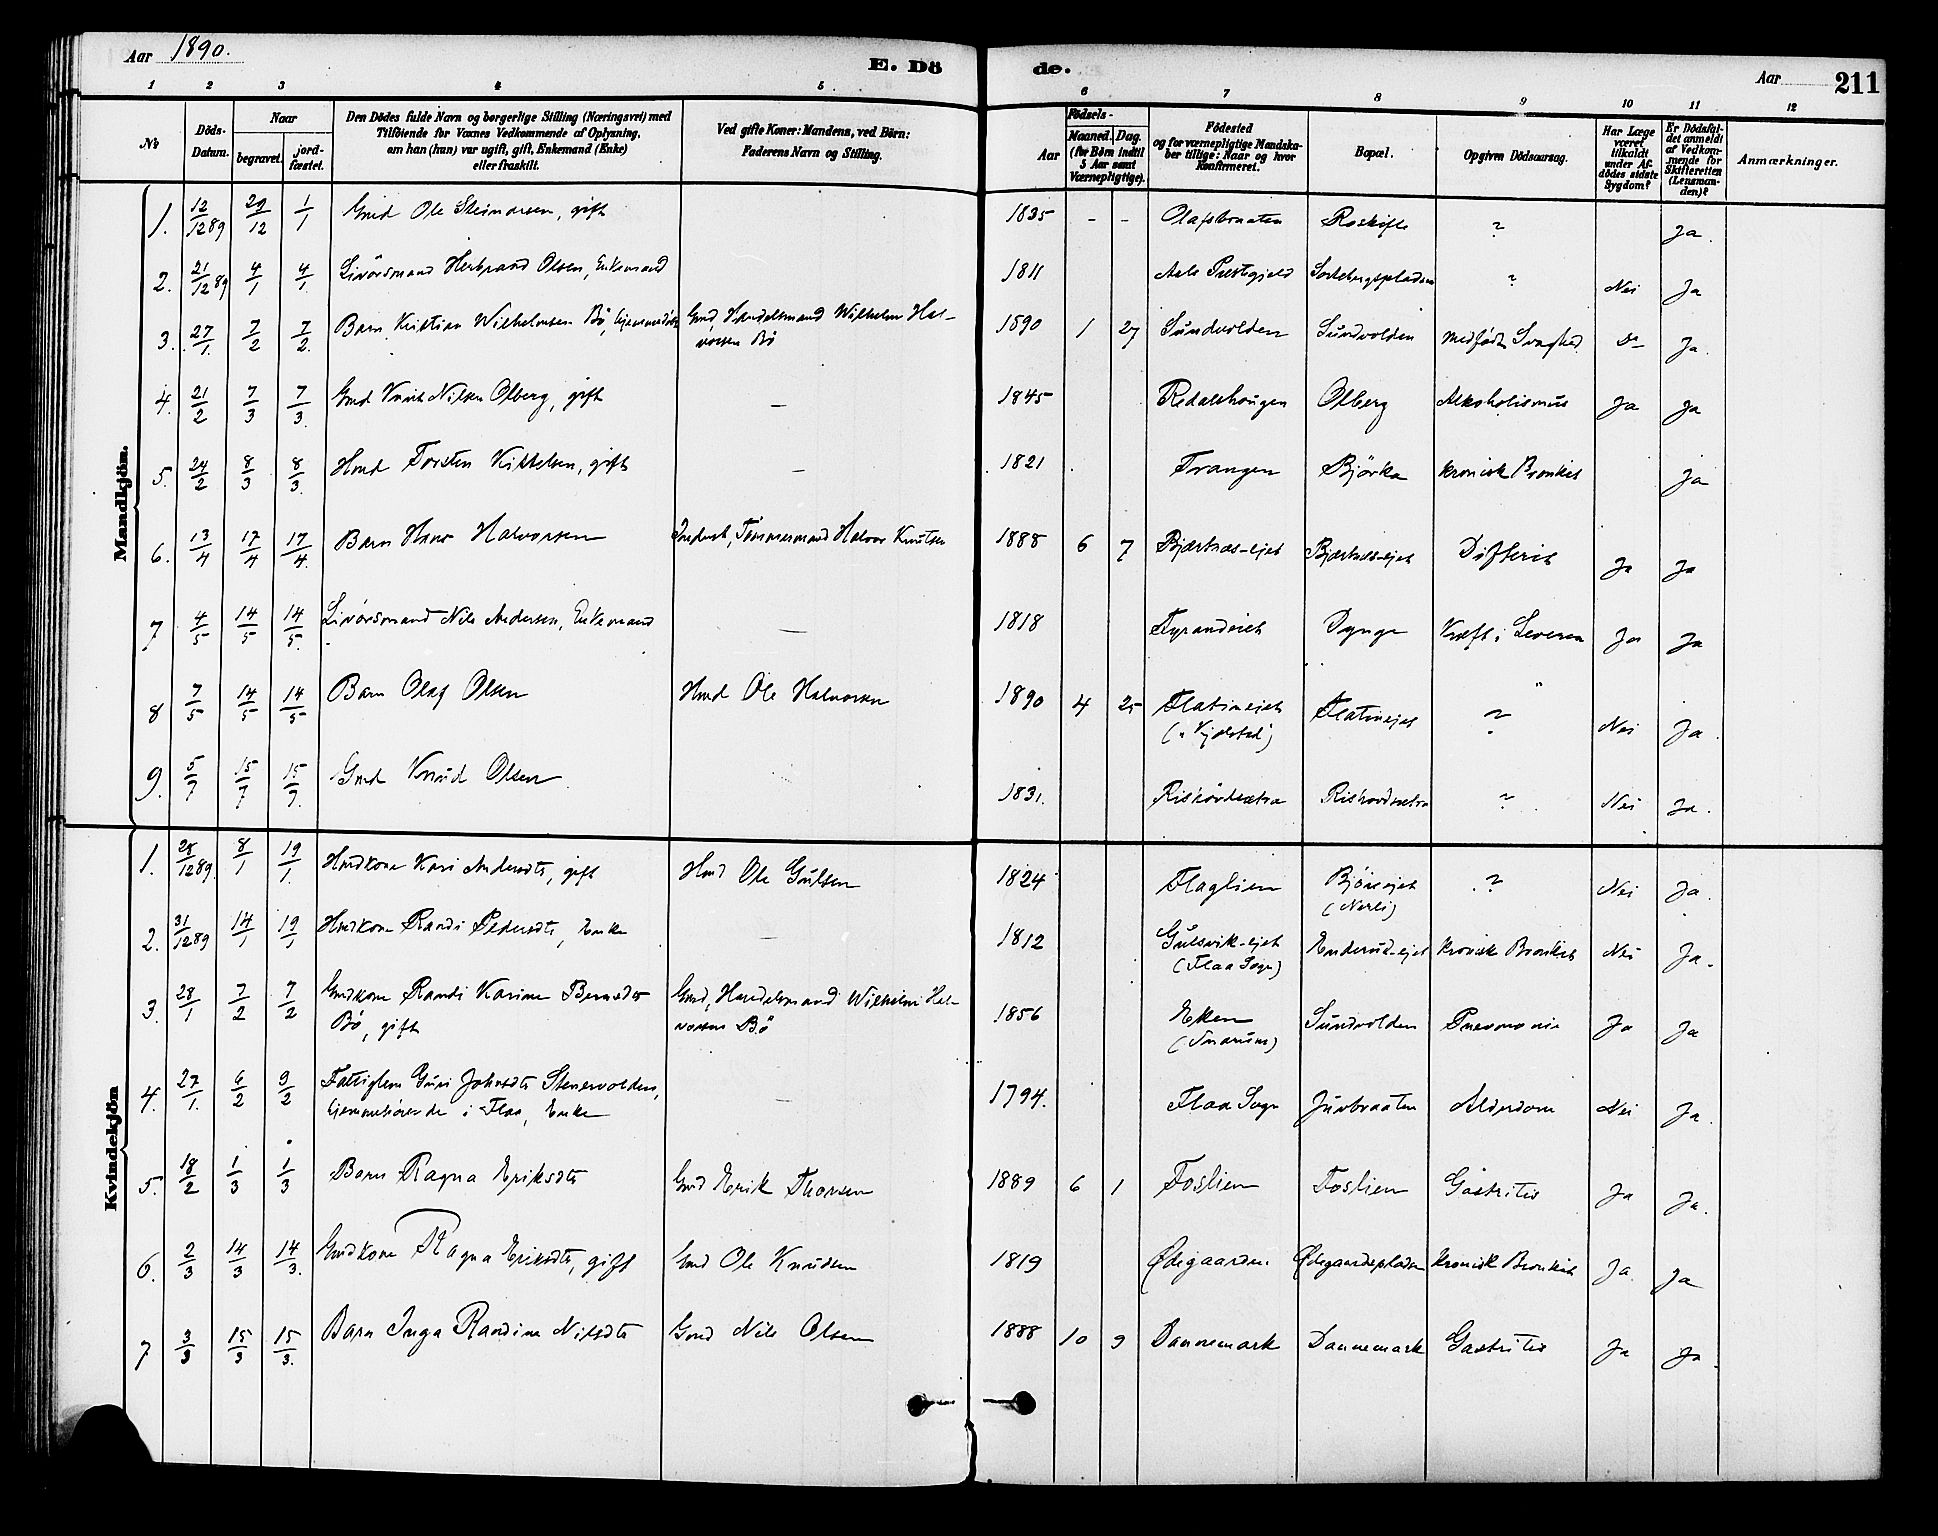 Aar 1890.
E. Dö
de.
Aar
211
1 2 3 4 5 6 7 8 9 10 11 12
No
Döds-
Datum.
Naar
begravet.
jord-
fæstet.
Den Dödes fulde Navn og borgerlige Stilling (Næringsvei) med
Tilföiende for Voxnes Vedkommende af Oplysning,
om han (hun) var ugift, gift, Enkemand (Enke)
eller fraskilt.
Ved gifte Koner: Mandens, ved Börn:
Faderens Navn og Stilling.
Födsels-
Aar
Maaned.
Dag.
(for Börn indtil
5 Aar samt
Værnepligtige).
Födested
og for værnepligtige Mandska-
ber tillige: Naar og hvor
Konfirmeret.
Bopæl.
Opgiven Dödsaarsag.
Har Læge
været
tilkaldt
under Af-
dödes sidste
Sygdom?
Er Dödsfal-
det anmeldt
af Vedkom-
mende for
Skifteretten
(Lensman-
den)?
Anmærkninger.
Mandkjön.
1. 12/12 89 29/12 1/1 Gmd Ole Steinarsen, gift 1835 - - Olafsbraaten Roskifte ? Ja.
2. 21/12 89 4/1 4/1. Livörsmand Herbrand Olsen, Enkemand 1811 Aals Prestegjeld Sortebergspladsen ? Nei Ja
3. 27/1. 7/2 7/2. Barn Kristian Wilhelmsen Bö, Gmd, Handelsmand Wilhelm Hal- 1890 1 27 Sundvolden Sundvolden medfödt Svaghed Do Ja.
vorsen Bö
4. 21/2 7/3 7/3. Gmd Knut Nilsen Olberg, gift — 1845 Redalshougen Olberg Alkoholismus Ja Ja
5. 24/2 8/3 8/3. Hmd Torsten Kittelsen, gift — 1821 Trangen Björka kronisk Bronkit Ja
6. 13/4 17/4 17/4. Barn Hans Halvorsen Inderst, Tömmermand Halvor Knutsen 1888 6 7 Bjertnæs-ejet Bjertnæs-ejet Difterit Ja Ja
7 4/5 14/5 14/5. Livörsmand Nils Andersen, Enkemand — 1818 Tyrandeiet Dynge Kræft i Leveren Ja Ja
8 7/5 14/5 14/5 Barn Olaf Olsen Hmd Ole Halvorsen 1890 4 25 Flatineiet Flatinejet ? Nei Ja.
9. 5/7 15/7 15/7. Gmd Knud Olsen 1831. Riskövdsætra Riskovdsætra ? Nei Ja.
Kvindekjön
1. 28/12 89. 8/1 19/1. Hmdkone Kari Andersdtr, gift Hmd Ole Gulsen 1824 Flaglien Björeejet ? Nei Ja.
(Nerli)
2. 31/12 89 14/1 19/1 Hmdkone Randi Pedersdtr, Enke — 1812 Gulsvik-ejet Enderud-ejet kronisk Bronkit Nei Ja.
(Flaa Sogn)
3. 28/1 7/2 7/2 Gmdkone Randi Karine Berntsdtr Gmd, Handelsmand Wilhelm Hal- 1856 Eken Sundvolden Pneumonie Ja Ja
Bö, gift vorsen Bö (Snarum)
4. 27/1. 6/2 9/2 Fattiglem Guri Johnsdtr Stenersvolden, — 1794. Flaa Sogn Juvbraaten Alderdom Nei Ja.
hjemmehörende i Flaa, Enke
5. 18/2 1/3 1/3 Barn Ragna Eriksdtr Gmd Erik Thorsen 1889 6 1 Foslien Foslien Gastritis Ja Ja.
6. 2/3 14/3 14/3. Gmdkone Ragna Eriksdtr, gift Gmd Ole Knudsen 1819 Ødegaarden Ødegaardspladsen kronisk Bronkit Ja. Ja
7 3/3 15/3 15/3. Barn Inga Randine Nilsdtr Gmd Nils Olsen 1888 10 9 Dannemark Dannemark Gastritis Ja Ja.